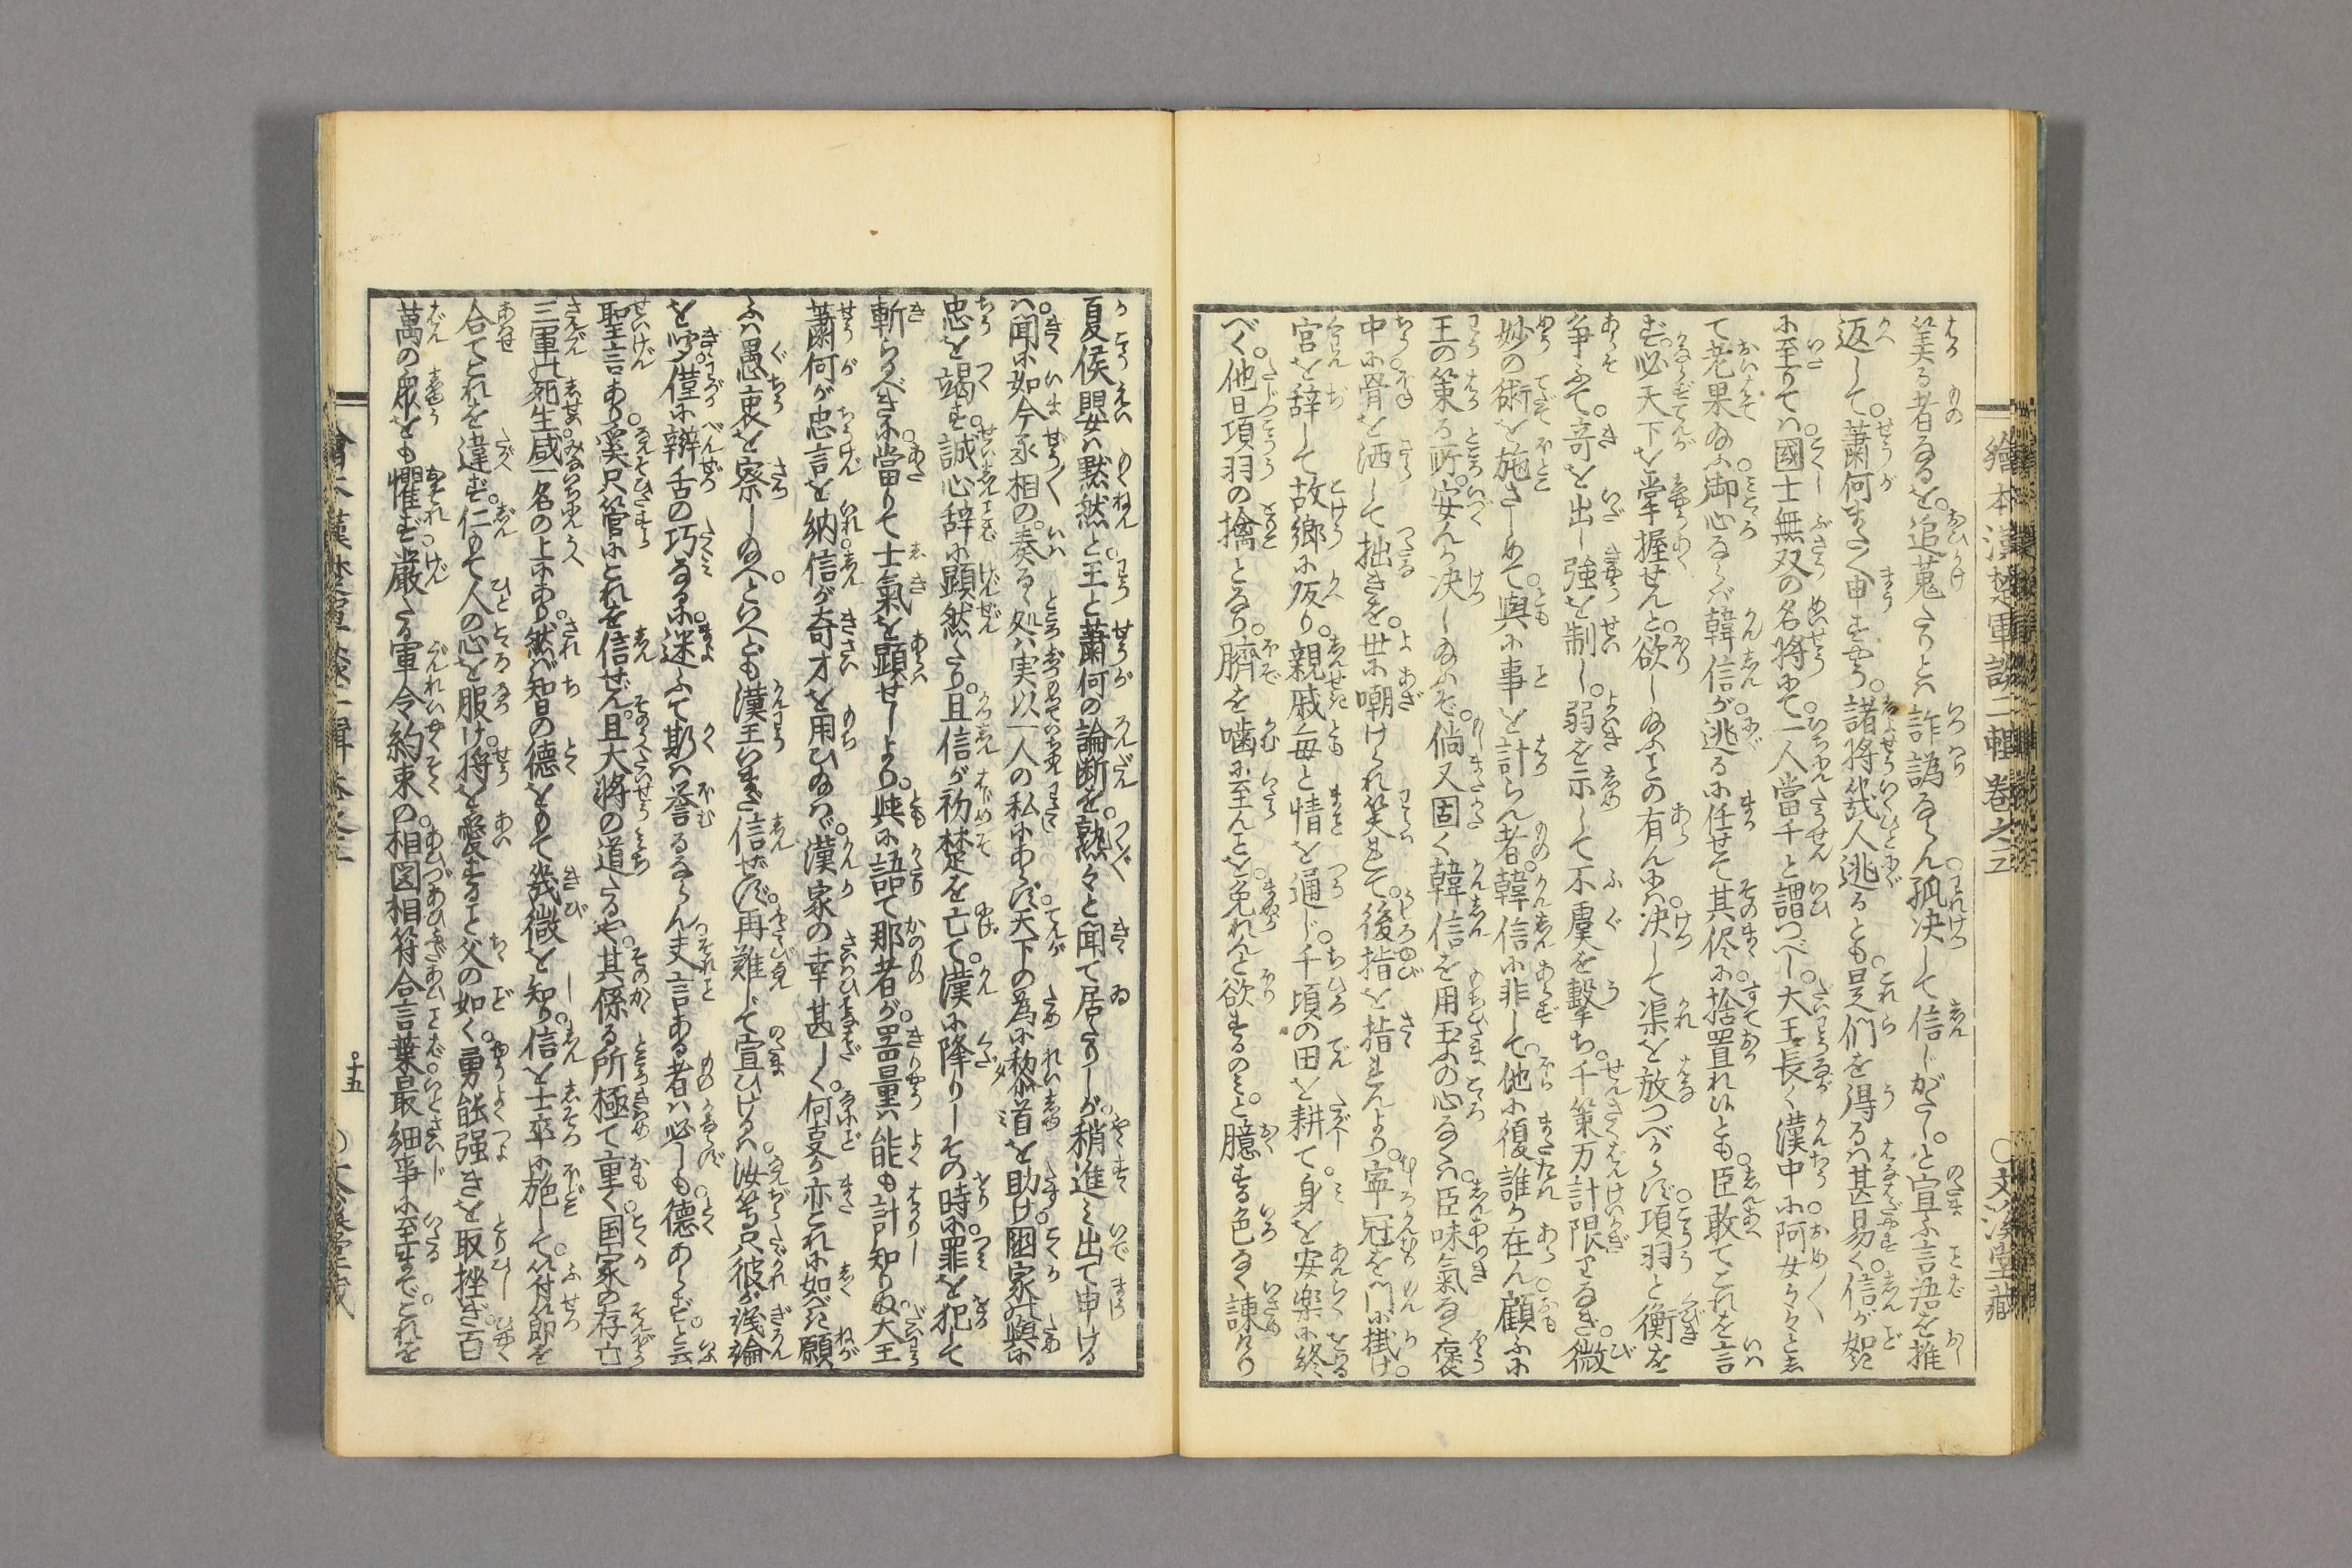 繪本漢楚軍談二輯卷之三 ○文溪堂藏
笑る者なるを。追蒐たりとハ詐譌ならん。孤决して信じがたし。と宣ふ言語を推
返して。蕭何またく申すやう。諸将幾人逃るとも。是們を得るハ甚易く。信が如き
に至りてハ。國士無双の名将にて。一人當千と謂つべし。大王長く漢中に阿女々々とし
て老果給ふ御心ならバ韓信が。逃るに任せて其侭に。捨置れ候とも。臣敢てこれを言
ず。必天下を掌握せんと。欲し給ふことの有んにハ。决して渠を放つべからず。項羽と衡を
争ふて。奇を出し強を制し。弱を示して不虞を撃ち。千策万計限りなき。微
妙の術を施さしめて。與に事を計らん者。韓信に非して。他に復誰か在ん。顧ふに
王の策る所。安んか决し給ふぞ。倘又固く韓信を用玉ふの心なくハ。臣味氣なく褒
中に骨を洒して拙きを。世に嘲けられ笑れて。後指を指れんより。寧冠を門に掛け。
宮を辞して故郷に皈り。親戚毎と情を通じ。千頃の田を耕て。身を安楽に終
べく。他日項羽の擒となり。臍を噛に至んことを。免れんと欲するのミ。と。臆する色なく諫けり
夏侯嬰ハ黙然と。王と蕭何の論断を。熟々と聞て居たりしが。稍進ミ出て申ける
ハ。聞に如今丞相の。奏る処ハ実以一人の私にあらず。天下の為に黎首を助け。国家の與に
忠を竭す。誠心辞に顕然たり。且信が初楚を亡て。漢に降りしその時に。罪を犯して
斬らるべきに。當りて士氣を顕せしより。與に語て那者が。器量ハ能も計知りぬ。大王
蕭何が忠言を納れ。信が奇才を用ひ給はゞ。漢家の幸甚しく。何事か亦これに如べき。願
ふハ愚衷を察し給へ。といへども漢王いまだ信ぜず。再難じて宣ひけるハ。汝等只彼が浅論
を聞。僅に辯舌の巧なるに。迷ふて斯ハ誉るならん。夫言ある者ハ必しも。徳あらず。と云
聖言あり。奚只管にこれを信ぜん。且大将の道たるや。其係る所極て重く。国家の存亡
三軍の死生咸。一名の上にあり。然バ智の徳をもて幾微を知り。信を士卒に施して。符節を
合てこれを違ず。仁もて人の心を服け。将を愛すること父の如く。勇能強きを取挫ぎ。百
萬の衆をも懼ず。厳たる軍令約束の。相図相符合言葉。最細事に至まで。これを
十五